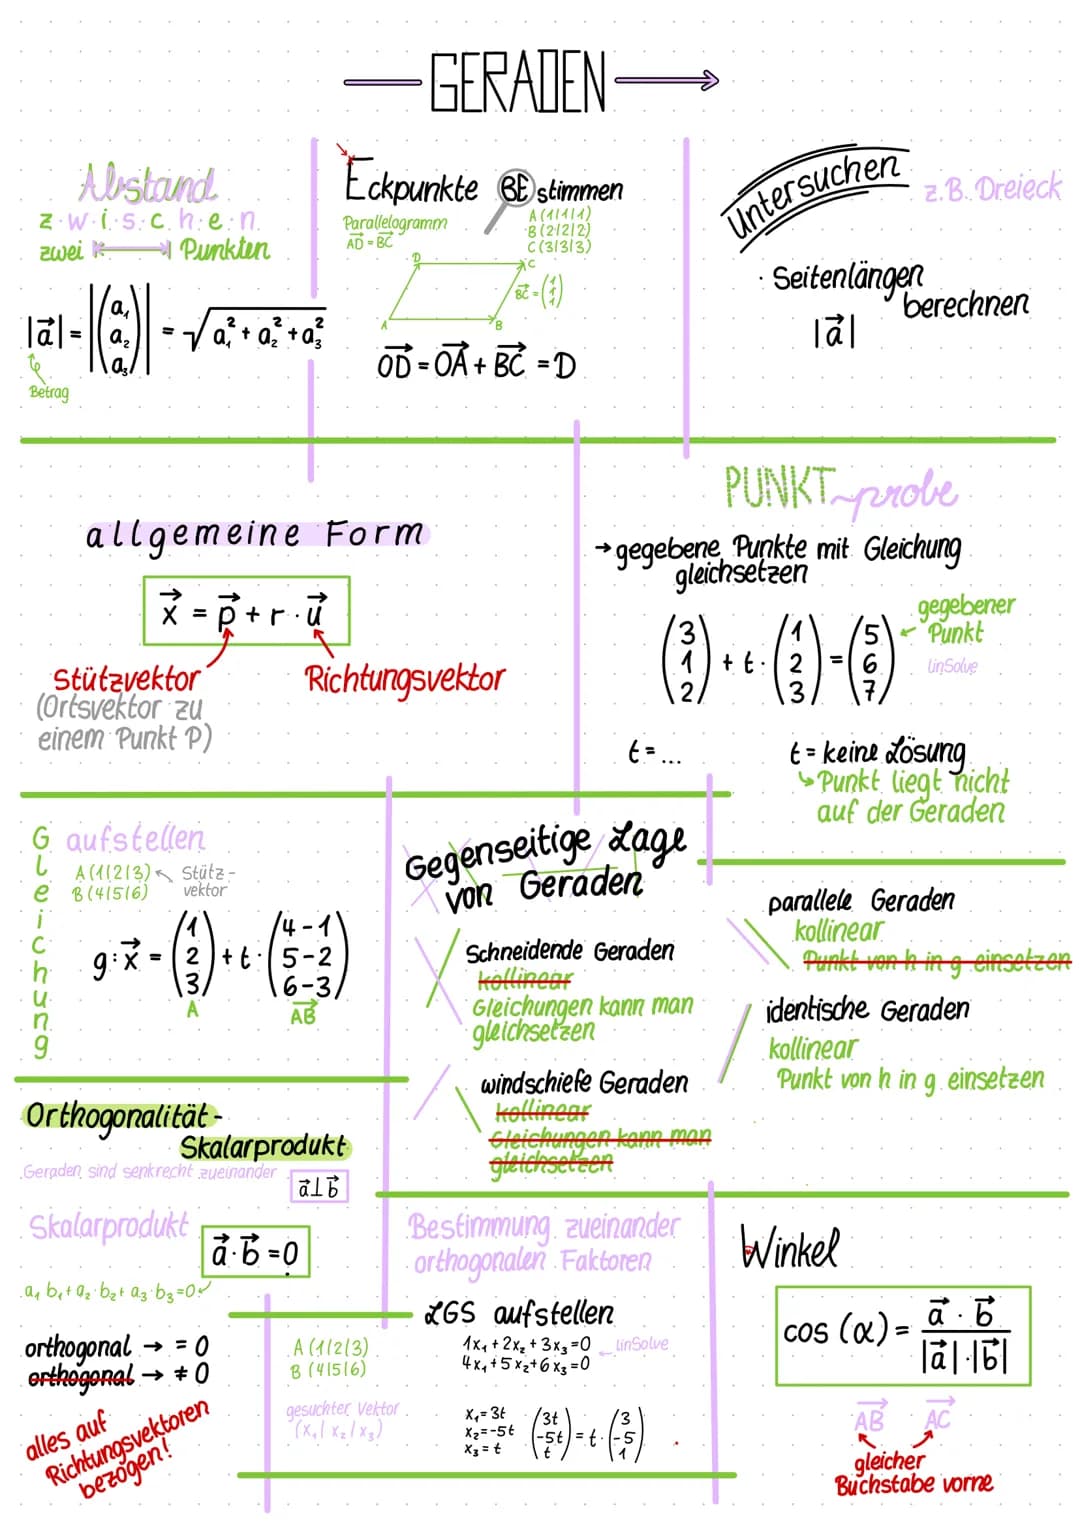 GERADEN
Abstand
zwischen
zwei Punkten
|a⃗| = |(a₁ a₂ a₃)| = √a₁² + a₂² + a₃²
Betrag
Eckpunkte BEstimmen
Parallelogramm
AD⃗ = BC⃗
A (1|1|1)
B (2|2|2)
C (3|3|3)
D
C
BC⃗ = (1 1 1)
A
B
OD⃗ = OA⃗ + BC⃗ = D
Untersuchen
z.B. Dreieck
· Seitenlängen
berechnen
|a⃗|
allgemeine Form
x⃗ = p⃗ + r · u⃗
Stützvektor
(Ortsvektor zu
einem Punkt P)
Richtungsvektor
PUNKT~probe
→ gegebene Punkte mit Gleichung
gleichsetzen
(3 1 2) + t · (1 2 3) = (5 6 7)
gegebener
Punkt
linSolve
t = ...
t = keine Lösung
↳ Punkt liegt nicht
auf der Geraden
Gleichung
aufstellen
A (1|2|3)
B (4|5|6)
Stütz-
vektor
g: x⃗ = (1 2 3) + t · (4-1 5-2 6-3)
A
AB⃗
Gegenseitige Lage
von Geraden
Schneidende Geraden
kollinear
Gleichungen kann man
gleichsetzen
windschiefe Geraden
kollinear
Gleichungen kann man
gleichsetzen
parallele Geraden
kollinear
Punkt von h in g einsetzen
identische Geraden
kollinear
Punkt von h in g einsetzen
Orthogonalität-
Skalarprodukt
Geraden sind senkrecht zueinander
a⃗⊥b⃗
Skalarprodukt
a⃗ · b⃗ = 0
a₁ b₁ + a₂ · b₂ + a₃ · b₃ = 0
orthogonal → = 0
orthogonal → ≠ 0
alles auf
Richtungsvektoren
bezogen!
Bestimmung zueinander
orthogonalen Faktoren
LGS aufstellen
A (1|2|3)
B (4|5|6)
1x₁ + 2x₂ + 3x₃ = 0
4x₁ + 5x₂ + 6x₃ = 0
linSolve
gesuchter Vektor
(x₁ | x₂ | x₃)
x₁ = 3t
x₂ = -5t
x₃ = t
(3t -5t t) = t · (3 -5 1)
Winkel
cos (α) = a⃗ · b⃗ / |a⃗| · |b⃗|
AB⃗ AC⃗
gleicher
Buchstabe vorne